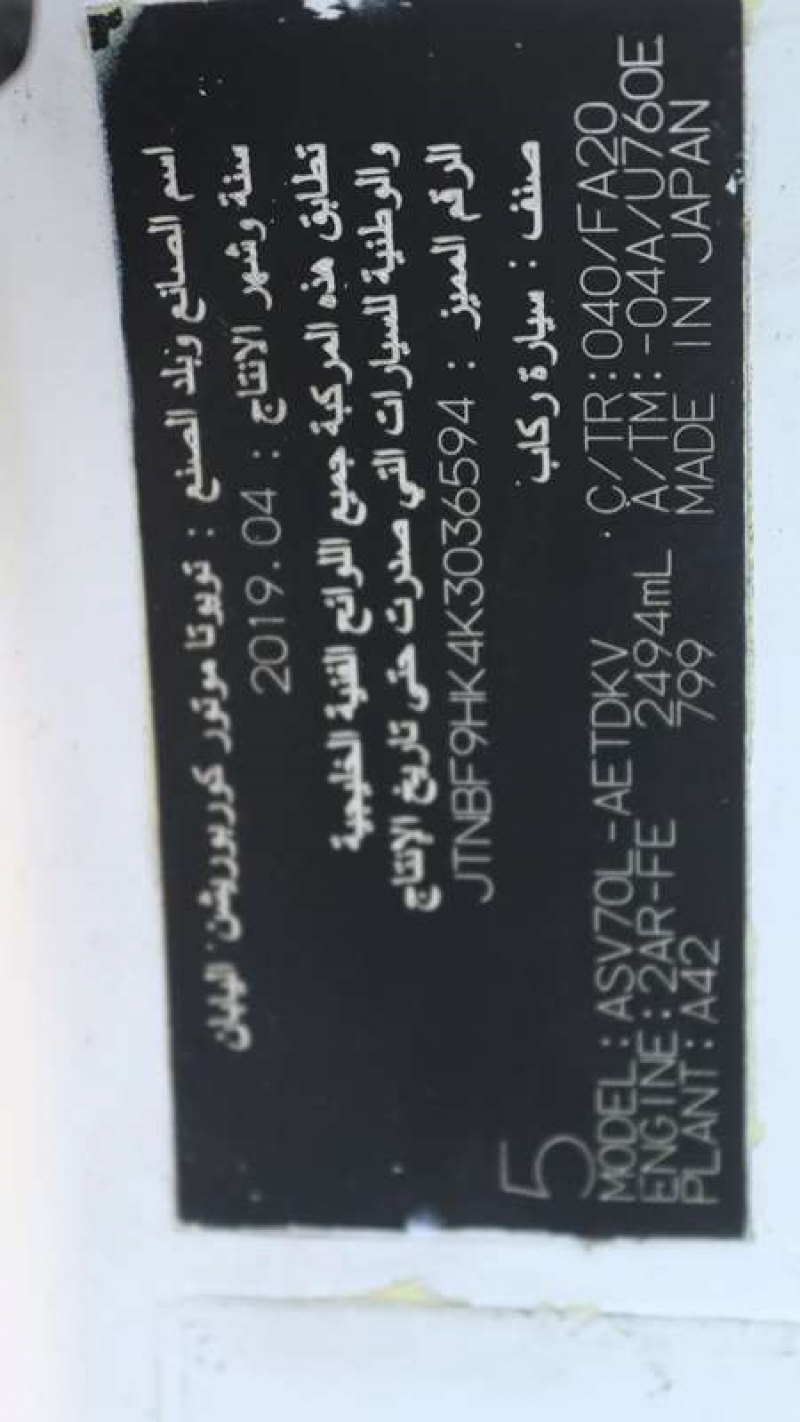 اسم الصانع وبلد الصنع : تويوتا موتور كوربوريشن، اليابان
سنة وشهر الانتاج : 2019.04
تطابق هذه المركبة جميع اللوائح الفنية الخليجية
والوطنية للسيارات التي صدرت حتى تاريخ الانتاج
الرقم المميز : JTNBF9HK4K3036594
صنف : سيارة ركاب
5
MODEL : ASV70L-AETDKV C/TR:040/FA20
ENGINE:2AR-FE 2494mL A/TM:-04A/U760E
PLANT:A42 799 MADE IN JAPAN